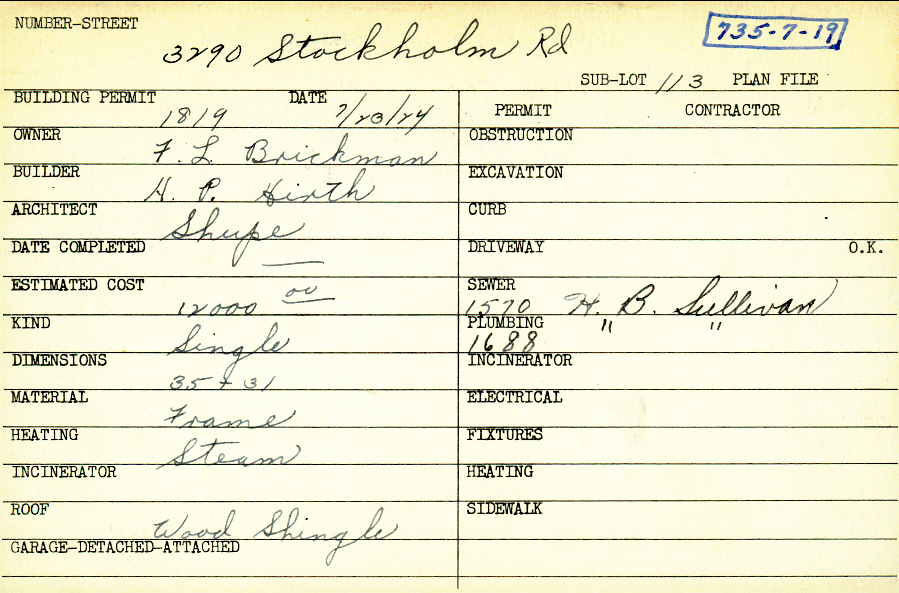 NUMBER-STREET
3290 Stockholm Rd
735-7-19
SUB-LOT 113 PLAN FILE
BUILDING PERMIT 1819 DATE 7/23/24
PERMIT CONTRACTOR
OWNER F. L. Brickman
OBSTRUCTION
BUILDER H. P. Hirth
EXCAVATION
ARCHITECT Shupe
CURB
DATE COMPLETED —
DRIVEWAY O.K.
ESTIMATED COST 12000 00
SEWER 1570 H. B. Sullivan
KIND Single
PLUMBING 1688 " "
DIMENSIONS 35 + 31
INCINERATOR
MATERIAL Frame
ELECTRICAL
HEATING Steam
FIXTURES
INCINERATOR
HEATING
ROOF Wood Shingle
SIDEWALK
GARAGE-DETACHED-ATTACHED